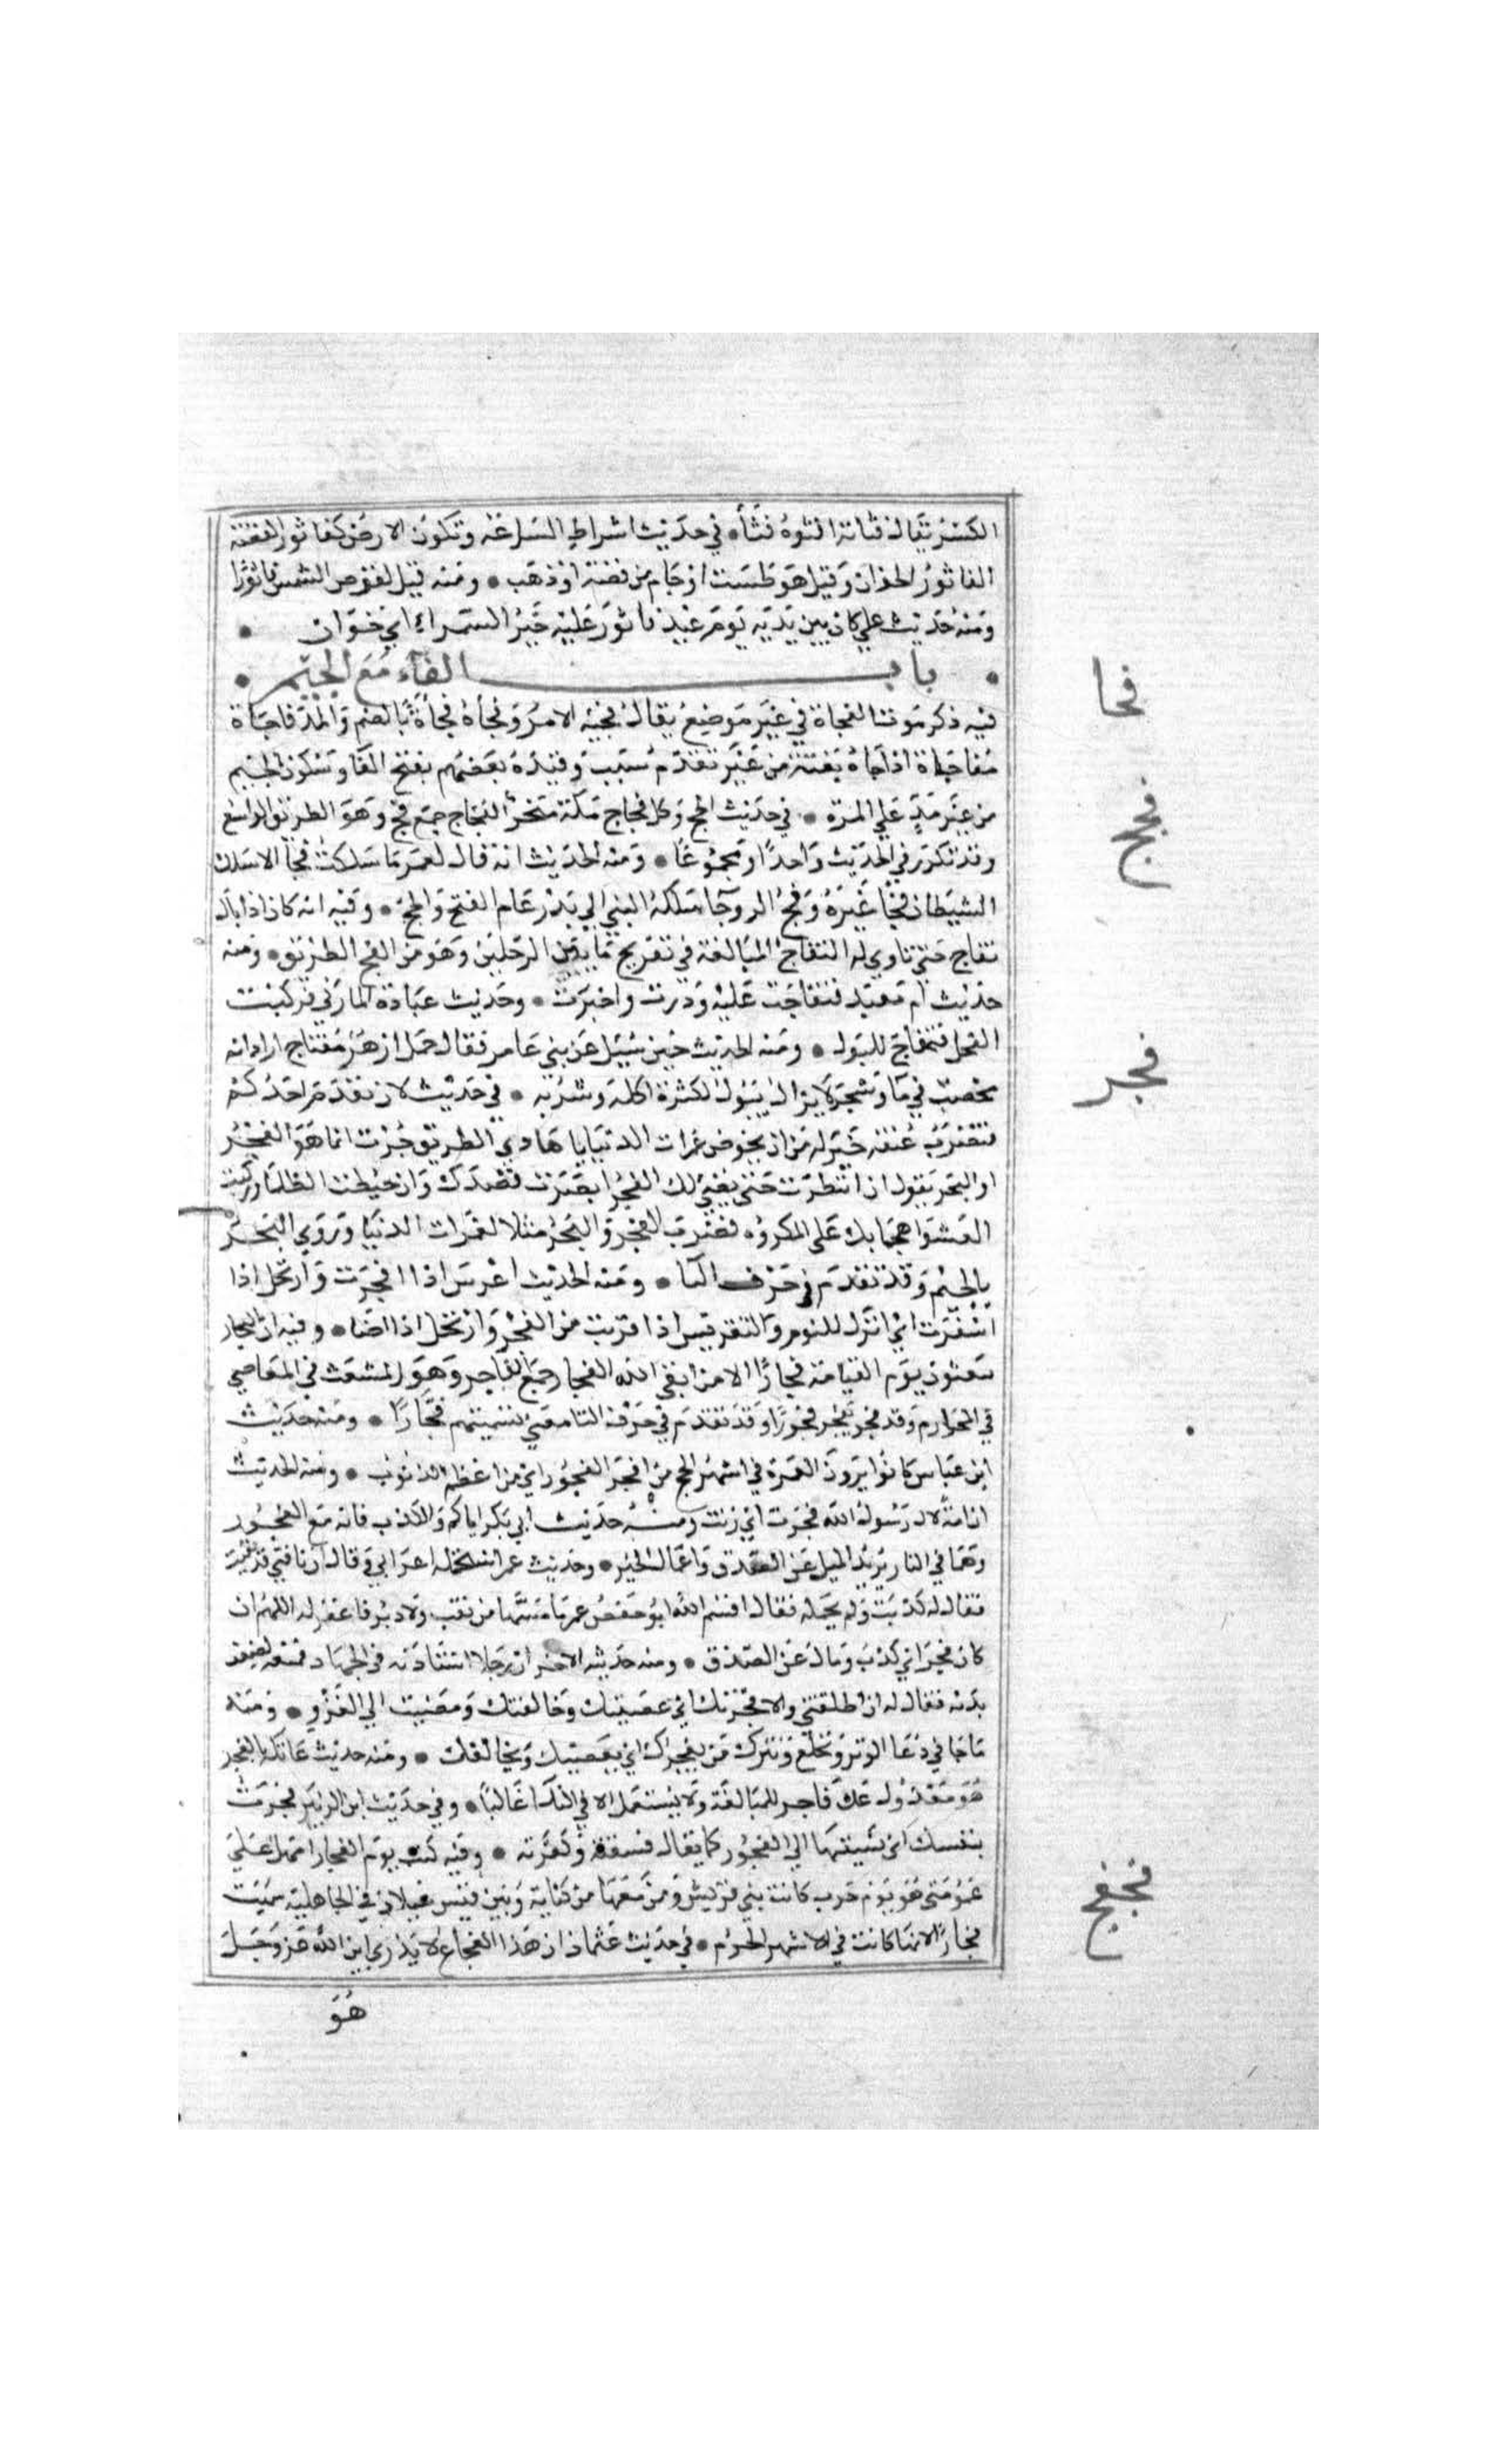 الكسر يقال فثاته افثوه فثأ • في حديث اشراط الساعة وتكون الارض كفاثور الفضة
الفاثور الخوان وقيل هو طست او جام من فضة او ذهب • ومنه قيل لقرص الشمس فاثورا
ومنه حديث علي كان بين يديه يوم عيد فاثور عليه خبز السمراء اي خوان •
• باب الفاء مع الجيم •
فجا
فيه ذكر موت الفجاة في غير موضع يقال فجيه الامر وفجأه فجأة بالضم والمد فاجاة
مفاجاة اذا جاه بغتة من غير تقدم سبب وقيده بعضهم بفتح الفا وسكون الجيم
فجج
من غير مد علي المرة • في حديث الحج وكل فجاج مكة منحر الفجاج جمع فج وهو الطريق الواسع
وقد تكرر في الحديث واحدا ومجموعا • ومنه الحديث انه قال لعمر ما سلكت فجا الا سلك
الشيطان فجا غيره وفج الروحا مسلكه النبي الي بدر عام الفتح والحج • وفيه انه كان اذا بال
تفاج حتي ناوي له التفاج المبالغة في تفريج ما بين الرجلين وهو من الفج الطريق • ومنه
حديث ام معبد فتفاجت عليه ودرت واجترت • وحديث عبادة المازني فركبت
الفحل فتفاج للبول • ومنه الحديث حين سيل عن بني عامر فقال جمل ازهر مفتاج اراد انه
فجر
مخصب في ما وشجر لا يزال يبول لكثرة اكله وشربه • في حديث لان تقدم احدكم
فتضرب عنقه خير له من ان يخوض غمرات الدنيا يا هادي الطريق جرت انما هو الفجر
او البحر يقول ان انتظرت حتي يضي لك الفجر ابصرت قصدك وان خبطت الظلما وركبت
العشوا هجما بك علي المكروه فضرب الفجر والبحر مثلا لغمرات الدنيا وتروي البحر
بالجيم وقد تقدم في حرف البا • ومنه الحديث اعرس اذا افجرت وارتحل اذا
اسفرت اي انزل للنوم والتعريس اذا قربت من الفجر وارتحل اذا اضا • وفيه ان التجار
يبعثون يوم القيامة فجارا الا من اتقي الله الفجار جمع الفاجر وهو المنبعث في المعاصي
في المحارم وقد فجر يفجر فجورا وقد تقدم في حرف التا معني تسميتهم فجارا • ومنه حديث
ابن عباس كانوا يرون العمرة في اشهر الحج من افجر الفجور اي من اعظم الذنوب • ومنه الحديث
ان امة لال رسول الله فجرت اي زنت ومنه حديث ابي بكر اياكم والكذب فانه مع الفجور
وهما في النار يريد الميل عن الصدق واعمال الخير • وحديث عمر استحمله اعرابي وقال ان ناقتي قد نقبت
فقال له كذبت ولم يحمله فقال اقسم بالله ابو حفص عمر ما مسها من نقب ولا دبر فاغفر له اللهم ان
كان فجر اي كذب ومال عن الصدق • ومنه حديثه الاخر ان رجلا استاذنه في الجهاد فمنعه لضعف
بدنه فقال له ان اطلقتني والا فجرتك اي عصيتك وخالفتك ومضيت الي الغزو • ومنه
ما جا في دعا الوتر ونخلع ونترك من يفجرك اي يعصيك ويخالفك • ومنه حديث عاتكة يا لفجر
هو معدول عن فاجر للمبالغة ولا يستعمل الا في الندا غالبا • وفي حديث ابن الزبير فجرت
بنفسك اي نسبتها الي الفجور كما يقال فسقته وكفرته • وفيه كنت يوم الفجار انبل علي
فجفج
عمومتي هو يوم حرب كانت بين قريش ومن معها من كنانة وبين قيس عيلان في الجاهلية سميت
فجارا لانها كانت في الاشهر الحرم • في حديث عثمان ان هذا الفجفاج لا يدري اين الله عز وجل
هو